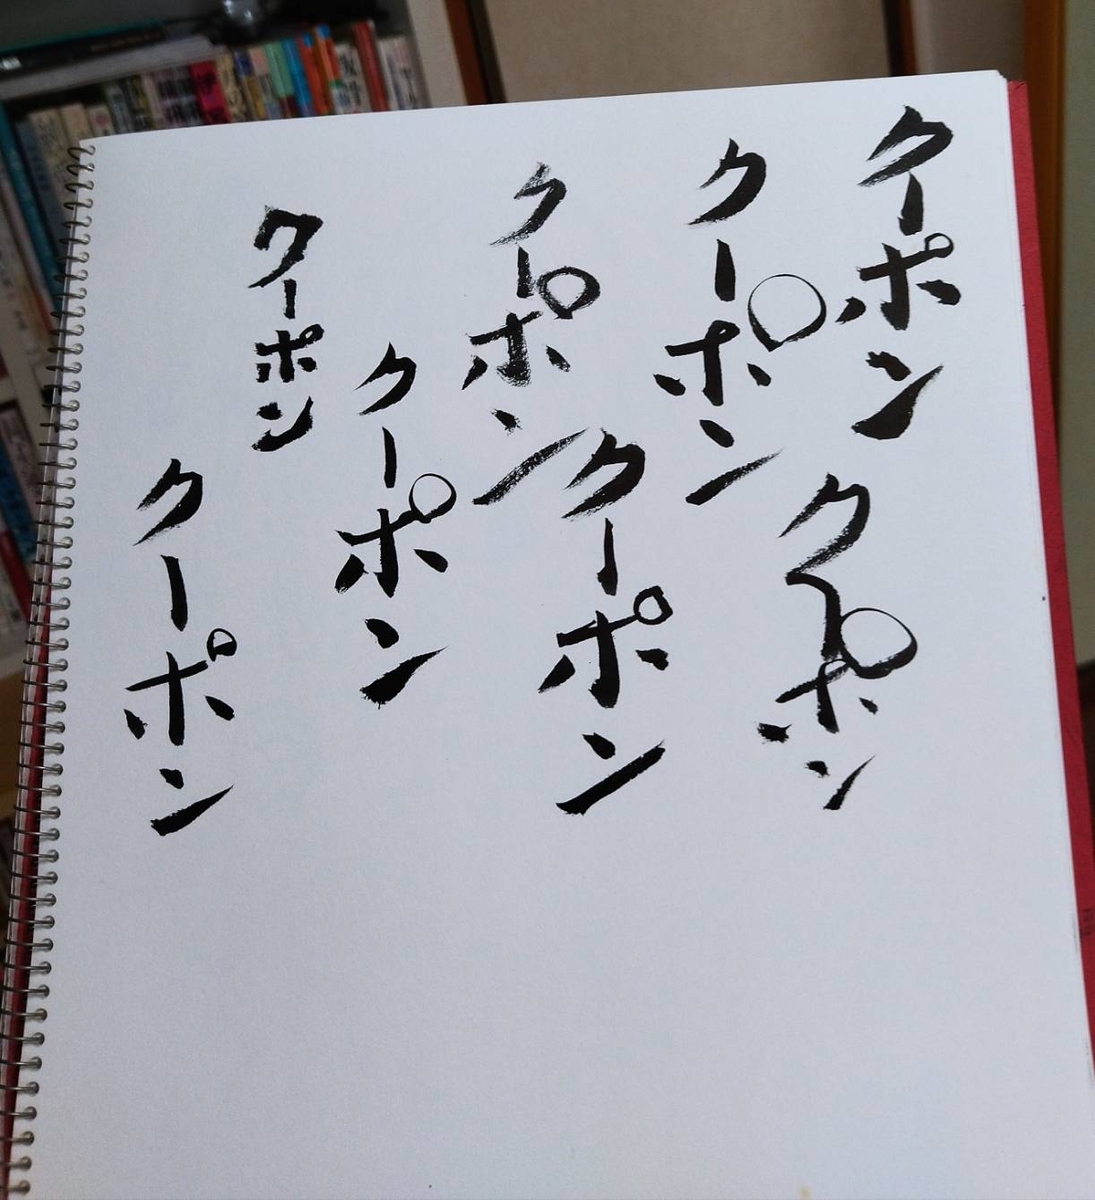 クーポン
クーポン
クーポン
クーポン
クーポン
クーポン
クーポン
クーポン